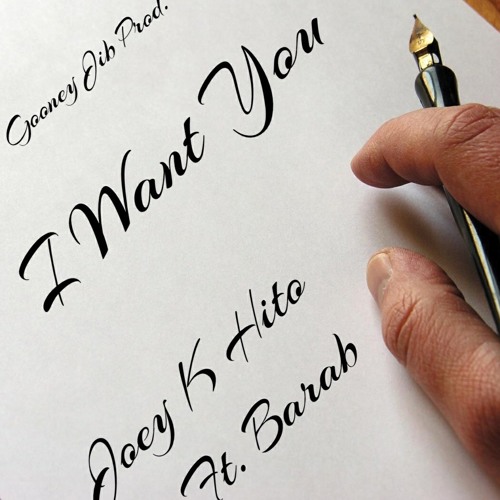 Gooney Jib Prod.
I Want You
Joey K Hito
Ft. Barab